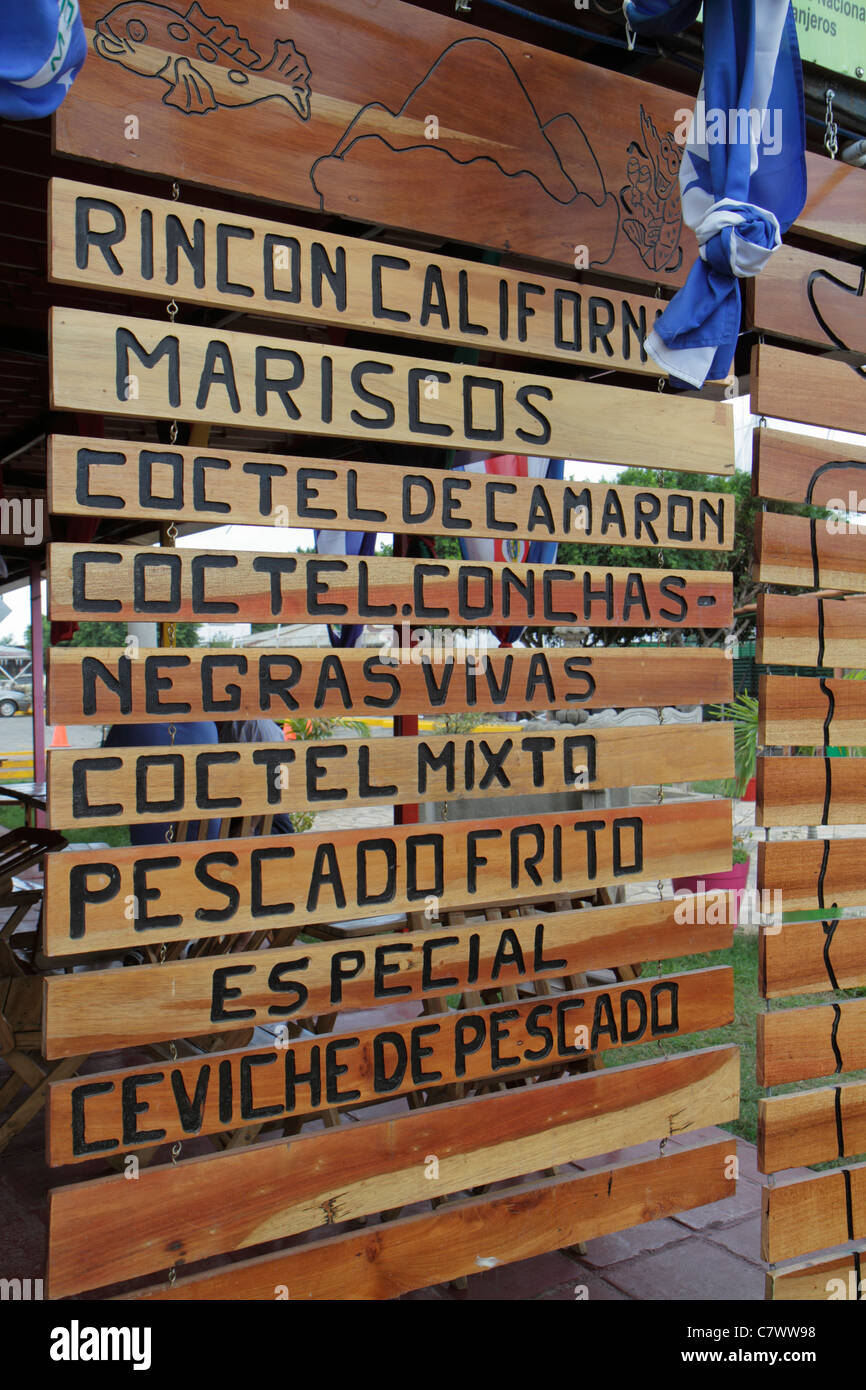 Nacional
anjeros
RINCON CALIFORN
MARISCOS
COCTEL DE CAMARON
COCTEL.CONCHAS-
NEGRAS VIVAS
COCTEL MIXTO
PESCADO FRITO
ESPECIAL
CEVICHE DE PESCADO
alamy
Image ID: C7WW98
www.alamy.com